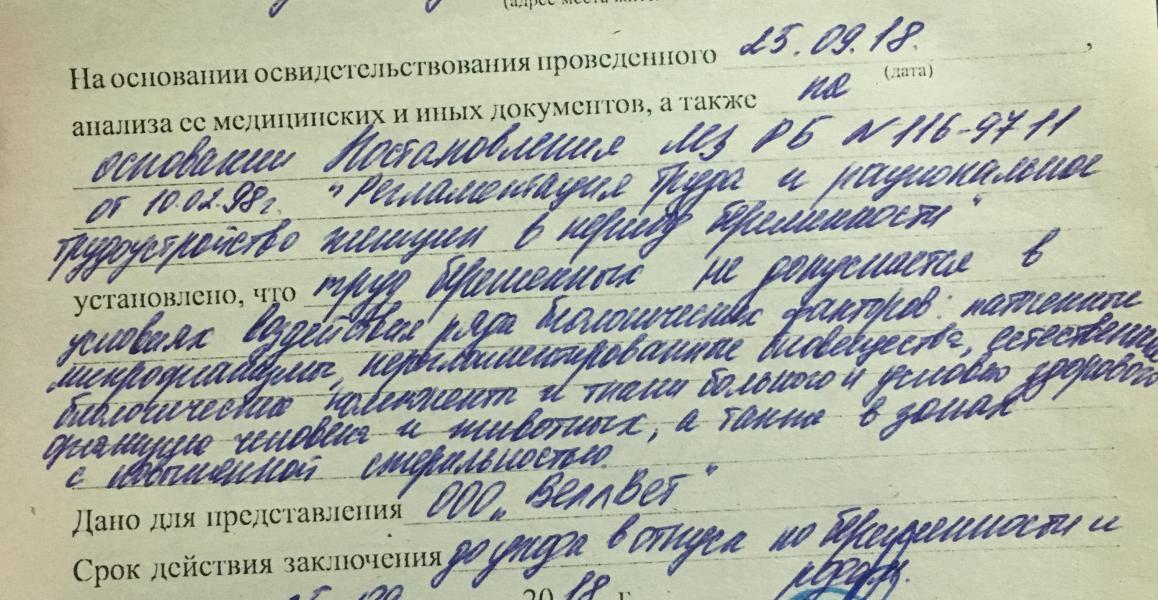 (адрес места
На основании освидетельствования проведенного 25.09.18.,
(дата)
анализа ее медицинских и иных документов, а также на
основании Постановления МЗ РБ N 116-9711
от 10.02.98г. "Регламентация труда и рациональное
трудоустройство женщин в период беременности"
установлено, что труд беременных не допускается в
условиях воздействия ряда биологических факторов:
микроорганизмы, нерегламентированные биовещества, естественные
биологические компоненты и ткани больного и условно здорового
организма человека и животных, а также в зонах
с повышенной стерильностью.
Дано для представления ООО „ВеллВет"
Срок действия заключения до ухода в отпуск по беременности и
родам.
2018 г.